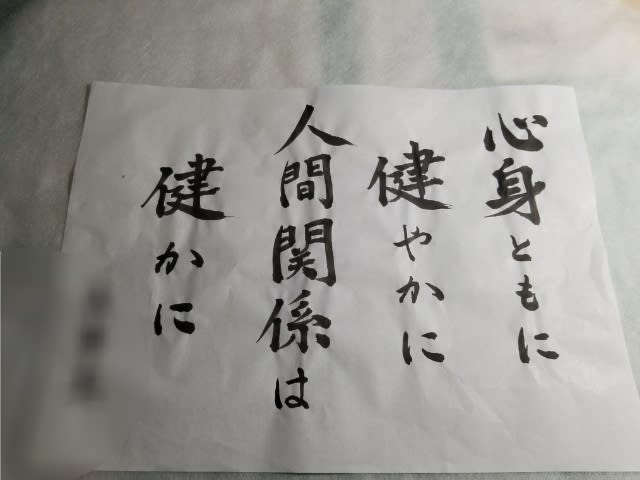 心身ともに
健やかに
人間関係は
健かに